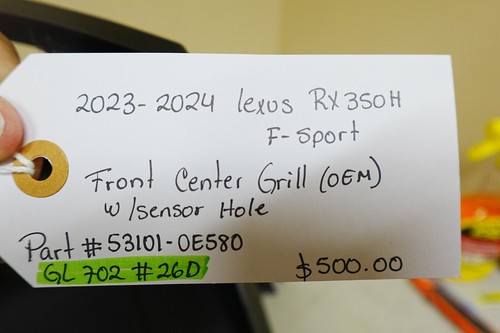 2023-2024 lexus RX350H
F-Sport
Front Center Grill (OEM)
w/sensor Hole
Part # 53101-0E580
GL 702 #26D
$500.00